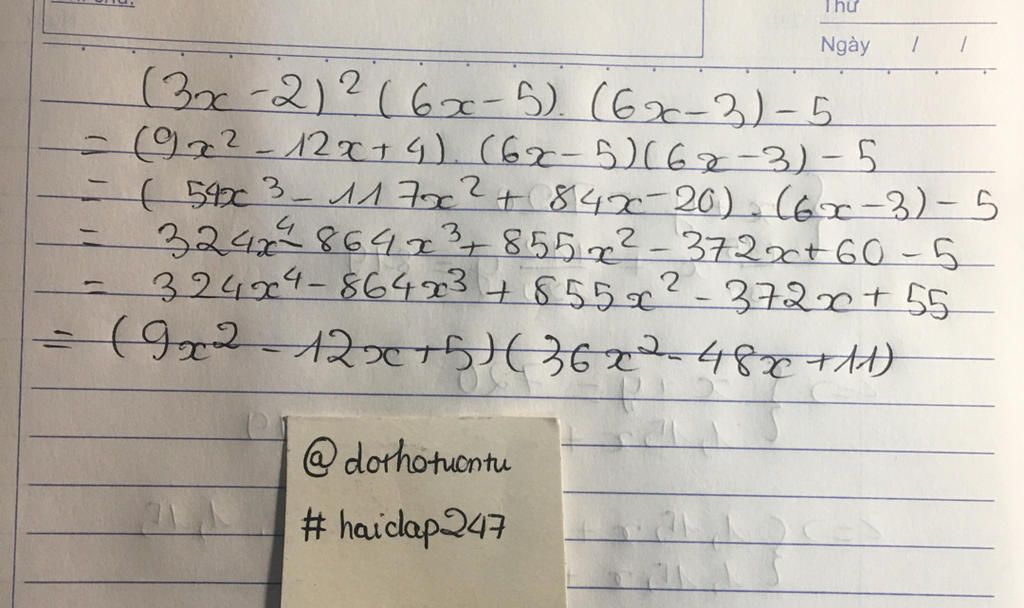 Thứ
Ngày / /
(3x-2)²(6x-5).(6x-3)-5
= (9x²-12x+4).(6x-5)(6x-3)-5
= (54x³-117x²+84x-20).(6x-3)-5
= 324x⁴-864x³+855x²-372x+60-5
= 324x⁴-864x³+855x²-372x+55
= (9x²-12x+5)(36x²-48x+11)
@dorhotuontu
#haidap247